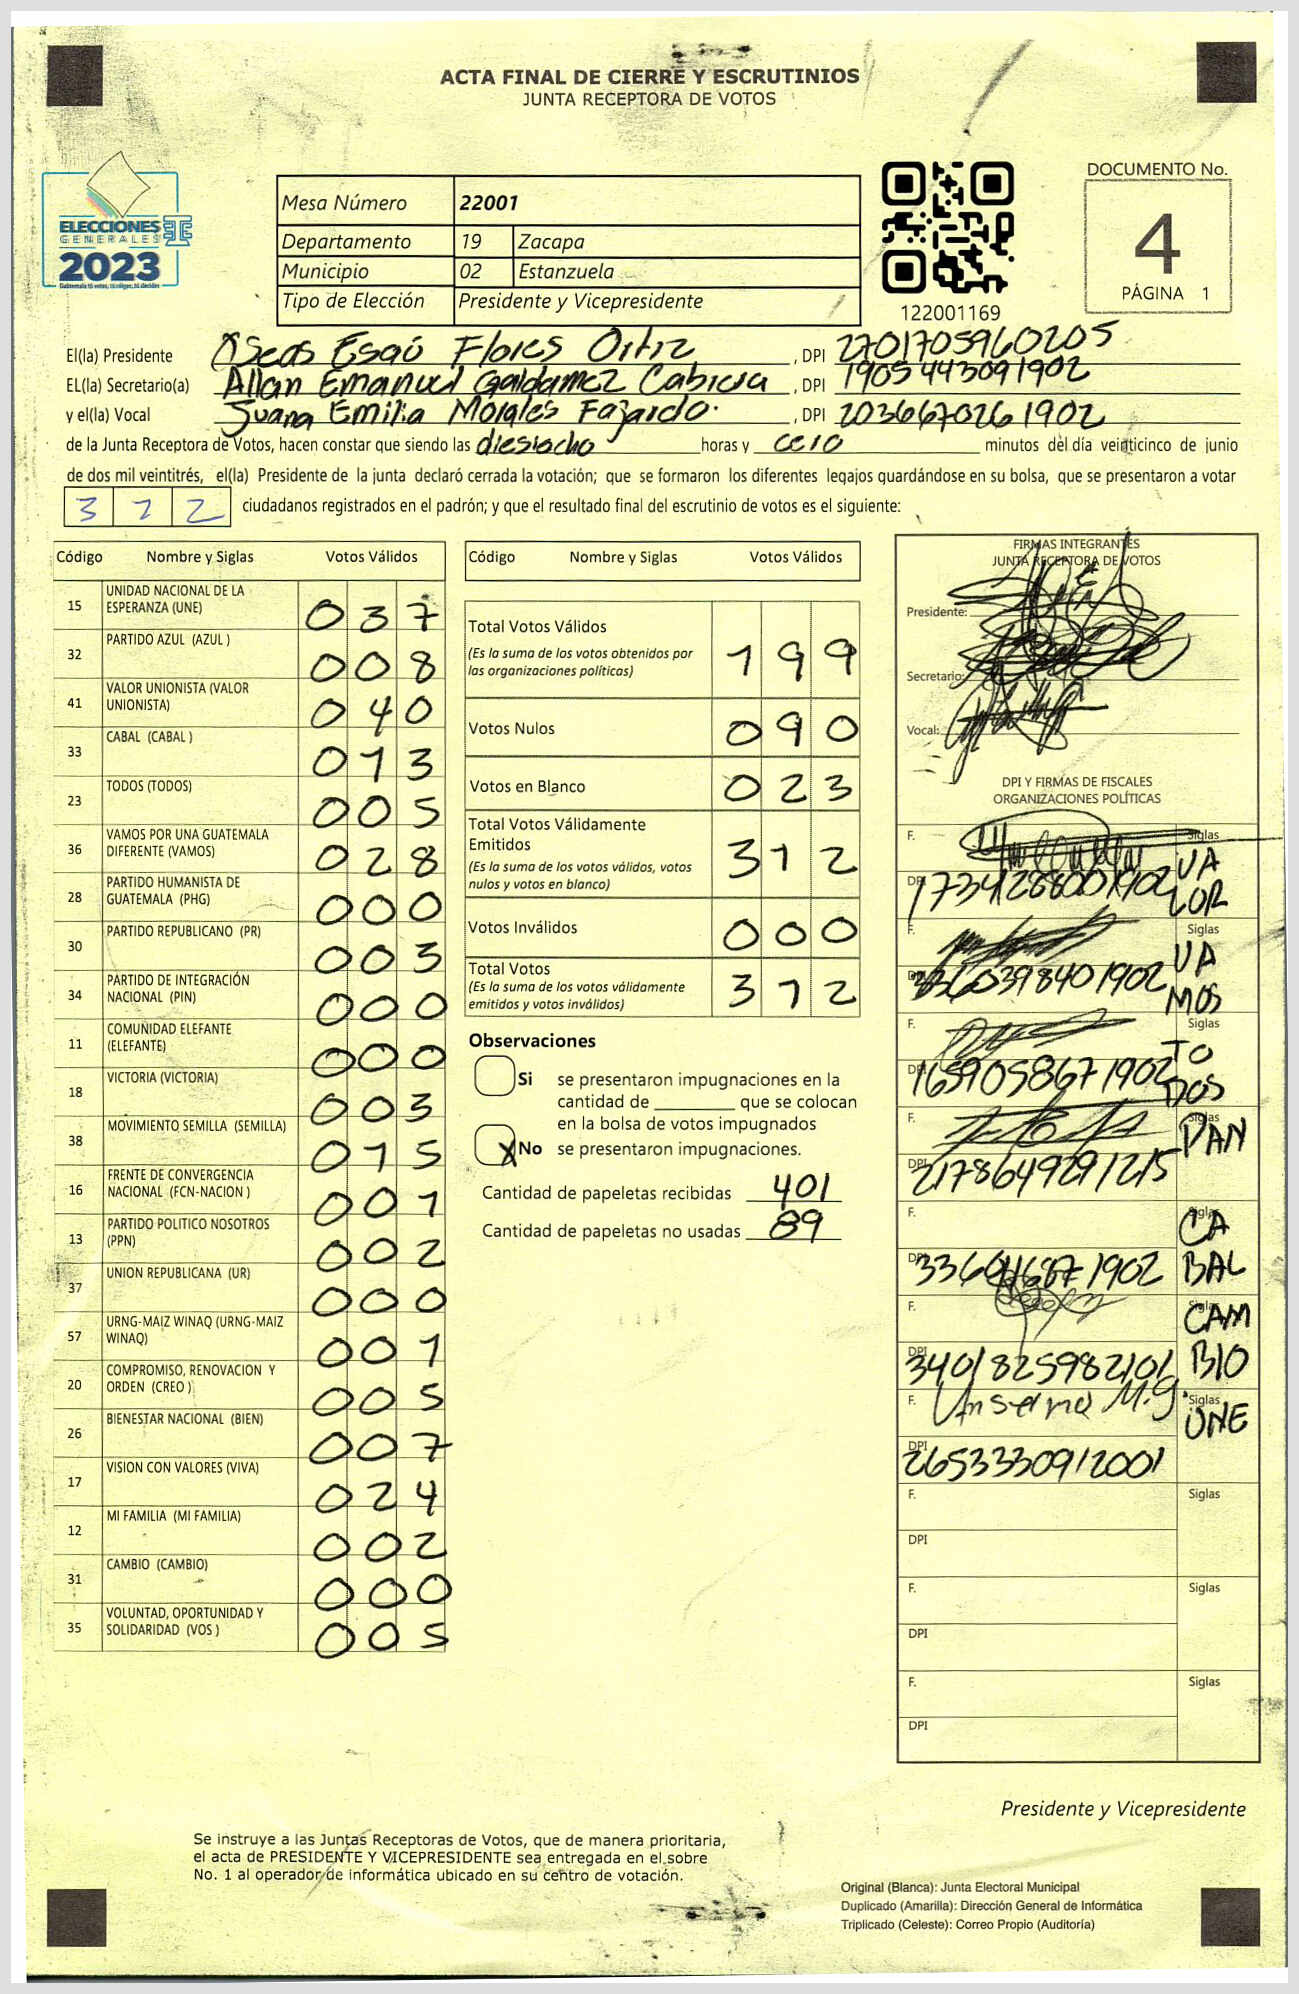 ACTA FINAL DE CIERRE Y ESCRUTINIOS
JUNTA RECEPTORA DE VOTOS
ELECCIONES
GENERALES
2023
Mesa Número 22001
Departamento 19 Zacapa
Municipio 02 Estanzuela
Tipo de Elección Presidente y Vicepresidente
122001169
DOCUMENTO No.
4
PÁGINA 1
El(la) Presidente Oseas Esaú Flores Ortiz , DPI 2701705960205
EL(la) Secretario(a) Allan Emanuel Galdamez Cabrera , DPI 1905443091902
y el(la) Vocal Juana Emilia Morales Fajardo. , DPI 2036670261902
de la Junta Receptora de Votos, hacen constar que siendo las diesiocho horas y cero minutos del día veinticinco de junio
de dos mil veintitrés, el(la) Presidente de la junta declaró cerrada la votación; que se formaron los diferentes legajos quardándose en su bolsa, que se presentaron a votar
312 ciudadanos registrados en el padrón; y que el resultado final del escrutinio de votos es el siguiente:
Código Nombre y Siglas Votos Válidos
15 UNIDAD NACIONAL DE LA ESPERANZA (UNE) 037
32 PARTIDO AZUL (AZUL ) 008
41 VALOR UNIONISTA (VALOR UNIONISTA) 040
33 CABAL (CABAL ) 013
23 TODOS (TODOS) 005
36 VAMOS POR UNA GUATEMALA DIFERENTE (VAMOS) 028
28 PARTIDO HUMANISTA DE GUATEMALA (PHG) 000
30 PARTIDO REPUBLICANO (PR) 003
34 PARTIDO DE INTEGRACIÓN NACIONAL (PIN) 000
11 COMUNIDAD ELEFANTE (ELEFANTE) 000
18 VICTORIA (VICTORIA) 003
38 MOVIMIENTO SEMILLA (SEMILLA) 015
16 FRENTE DE CONVERGENCIA NACIONAL (FCN-NACION ) 001
13 PARTIDO POLITICO NOSOTROS (PPN) 002
37 UNION REPUBLICANA (UR) 000
57 URNG-MAIZ WINAQ (URNG-MAIZ WINAQ) 001
20 COMPROMISO, RENOVACION Y ORDEN (CREO ) 005
26 BIENESTAR NACIONAL (BIEN) 007
17 VISION CON VALORES (VIVA) 024
12 MI FAMILIA (MI FAMILIA) 002
31 CAMBIO (CAMBIO) 000
35 VOLUNTAD, OPORTUNIDAD Y SOLIDARIDAD (VOS ) 005
Código Nombre y Siglas Votos Válidos
Total Votos Válidos 199
(Es la suma de los votos obtenidos por
las organizaciones políticas)
Votos Nulos 090
Votos en Blanco 023
Total Votos Válidamente
Emitidos 312
(Es la suma de los votos válidos, votos
nulos y votos en blanco)
Votos Inválidos 000
Total Votos 312
(Es la suma de los votos válidamente
emitidos y votos inválidos)
Observaciones
Si se presentaron impugnaciones en la
cantidad de ________ que se colocan
en la bolsa de votos impugnados
X No se presentaron impugnaciones.
Cantidad de papeletas recibidas 401
Cantidad de papeletas no usadas 89
FIRMAS INTEGRANTES
JUNTA RECEPTORA DE VOTOS
Presidente:
Secretario:
Vocal:
DPI Y FIRMAS DE FISCALES
ORGANIZACIONES POLÍTICAS
F. Siglas VALOR
DPI 1734128801902
F. Siglas VAMOS
DPI 3360398401902
F. Siglas TODOS
DPI 1659058671902
F. Siglas PAN
DPI 2178649291215
F. Siglas CABAL
DPI
F. Siglas CAMBIO
DPI 3401825982101
F. Siglas UNE
DPI 2653330912001
F. Siglas
DPI
F. Siglas
DPI
F. Siglas
DPI
Presidente y Vicepresidente
Se instruye a las Juntas Receptoras de Votos, que de manera prioritaria,
el acta de PRESIDENTE Y VICEPRESIDENTE sea entregada en el sobre
No. 1 al operador de informática ubicado en su centro de votación.
Original (Blanca): Junta Electoral Municipal
Duplicado (Amarilla): Dirección General de Informática
Triplicado (Celeste): Correo Propio (Auditoría)